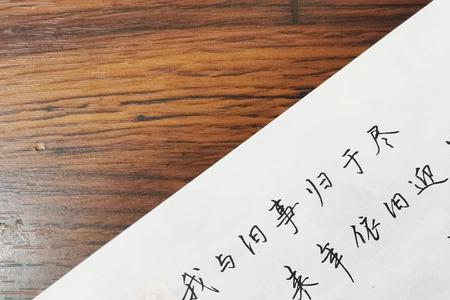 我与旧事归于尽
来年依旧迎